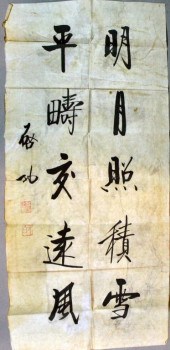 明月照積雪
平疇交遠風
啟功